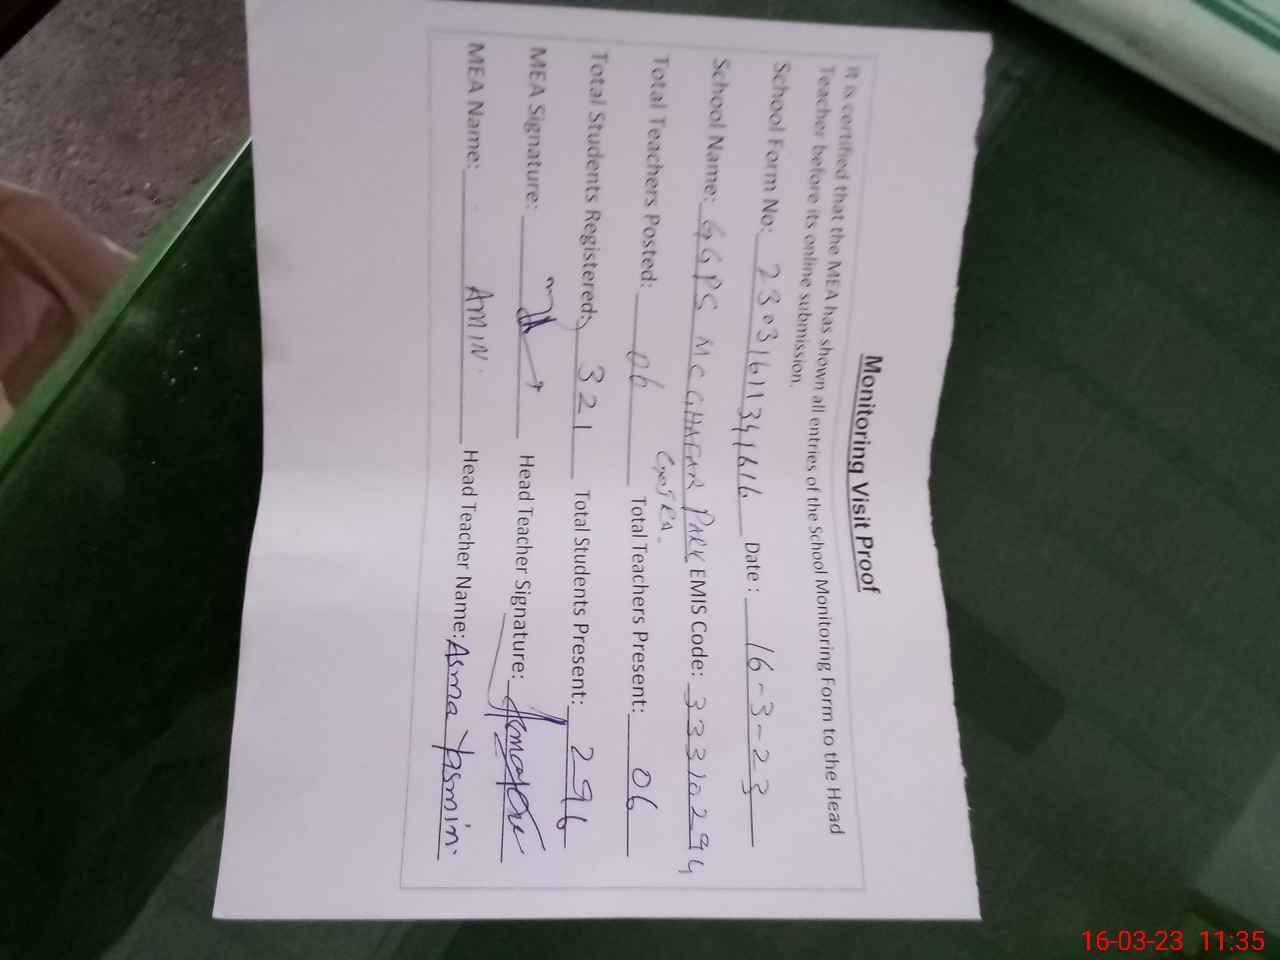 Monitoring Visit Proof
It is certified that the MEA has shown all entries of the School Monitoring Form to the Head
Teacher before its online submission.
School Form No: 23031611341616 Date: 16-3-23
School Name: GGPS MC GHAFAR PARK EMIS Code: 33310294
Total Teachers Posted: 06 Total Teachers Present: 06
Total Students Registered: 321 Total Students Present: 296
MEA Signature: Head Teacher Signature:
MEA Name: AMIN. Head Teacher Name: Asma Yasmin.
16-03-23 11:35